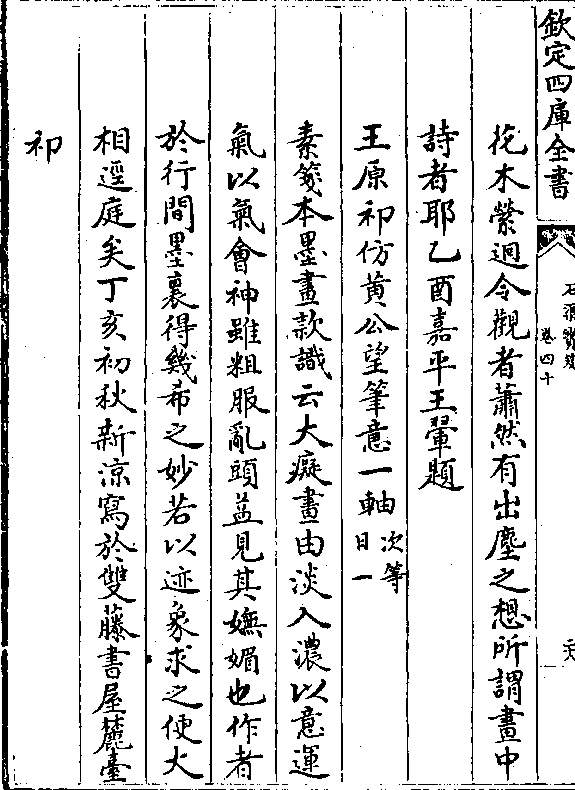 欽定四庫全書
石渠寶笈
卷四十
花木縈迴令觀者蕭然有出塵之想所謂畫中
詩者耶乙酉嘉平王翬題
王原祁仿黄公望筆意一軸次等日一
素箋本墨畫款識云大癡畫由淡入濃以意運
氣以氣會神雖粗服亂頭益見其嫵媚也作者
於行間墨裏得幾希之妙若以迹象求之便大
相逕庭矣丁亥初秋新涼寫於雙藤書屋麓臺
祁